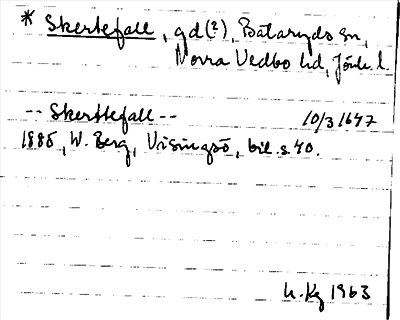 * Skertefall, gd(?), Bälaryds sn,
Norra Vedbo hd, Jönk. l.
-- Skerttefall -- 10/3 1647
1885, W. Berg, Visingsö, bil. s. 40.
1963